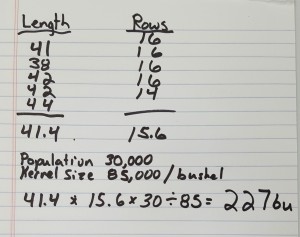 Length Rows
41 16
38 16
42 16
42 16
44 14
41.4 15.6
Population 30,000
Kernel Size 85,000/bushel
41.4 x 15.6 x 30 ÷ 85 = 227bu